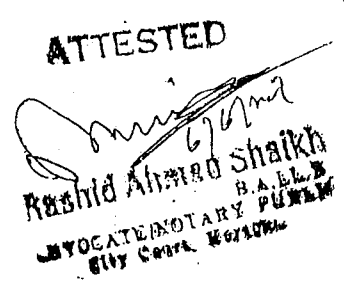 ATTESTED
Rashid Ahmad Shaikh
B.A. LL.B
ADVOCATE/NOTARY PUBLIC
City Court,